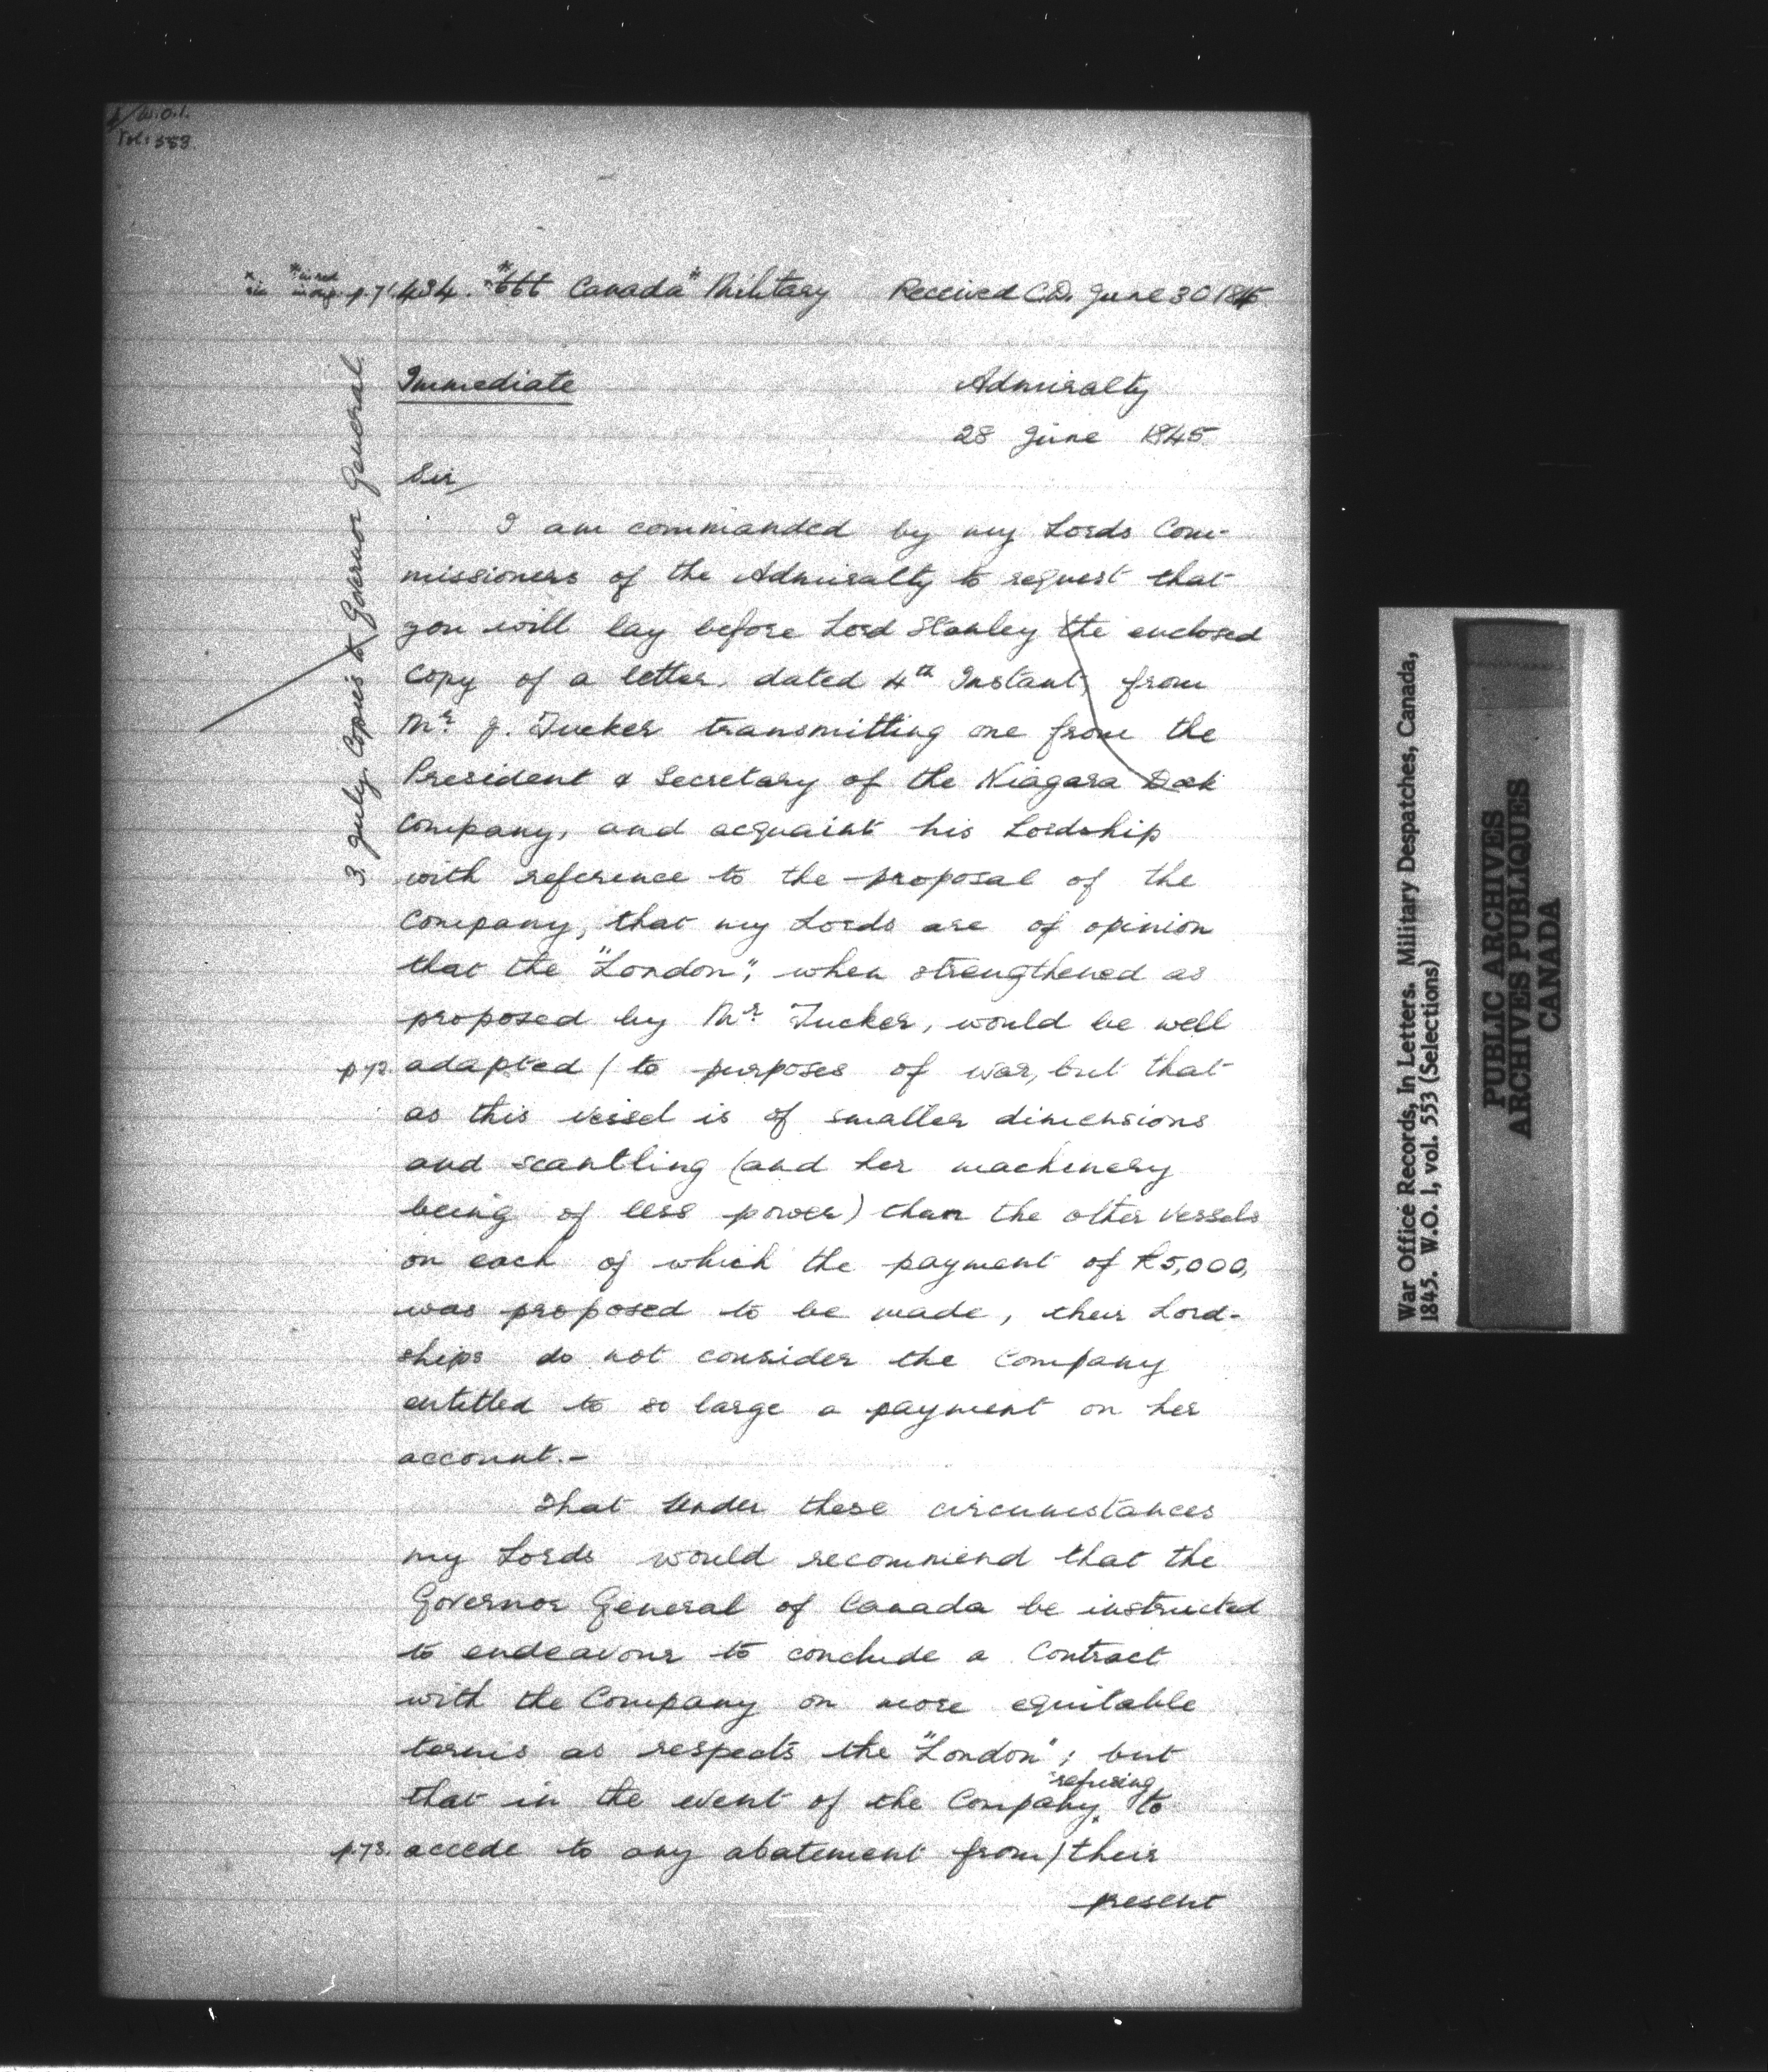 W.O.1.
Vol: 553.
* in red
p. 71. 434. *666 Canada* Military Received C.D. June 30 1845
Immediate Admiralty
28 June 1845
Sir,
3 July. Copies to Governor General.
I am commanded by my Lords Com-
missioners of the Admiralty to request that
you will lay before Lord Stanley the enclosed
copy of a letter dated 4th Instant, from
Mr. J. Tucker transmitting one from the
President & Secretary of the Niagara Dock
Company, and acquaint his Lordship
with reference to the proposal of the
Company, that my Lords are of opinion
that the "London", when strengthened as
proposed by Mr. Tucker, would be well
p. 72. adapted / to purposes of war, but that
as this vessel is of smaller dimensions
and scantling (and her machinery
being of less power) than the other vessels
on each of which the payment of £5,000,
was proposed to be made, their Lord-
ships do not consider the Company
entitled to so large a payment on her
account.-
That under these circumstances
my Lords would recommend that the
Governor General of Canada be instructed
to endeavour to conclude a Contract
with the Company on more equitable
terms as respects the "London"; but
that in the event of the Company refusing to
p. 73. accede to any abatement from / their
present
War Office Records, In Letters. Military Despatches, Canada,
1845. W.O. 1, vol. 553 (Selections)
PUBLIC ARCHIVES
ARCHIVES PUBLIQUES
CANADA